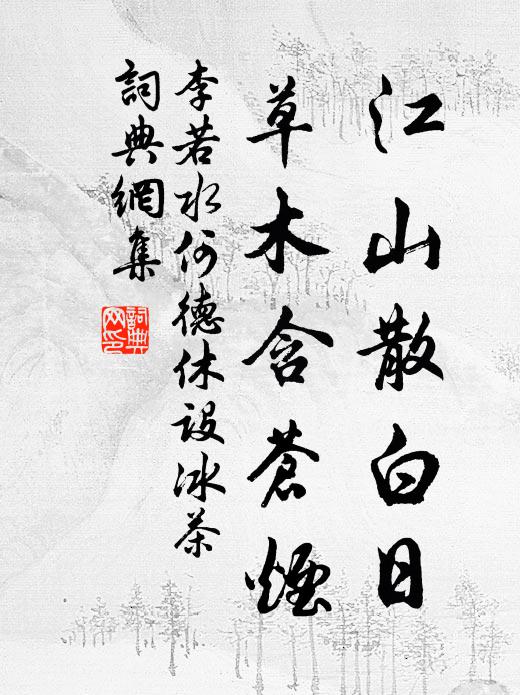 江山散白日
草木含蒼煙
李若水何德休設冰茶
詞典網集
詞典網印